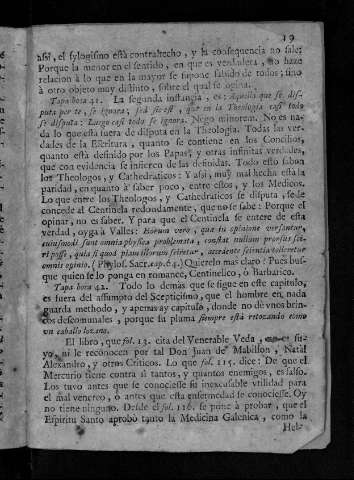 19
assi, el sylogismo està contrahecho, y la consequencia no sale:
Porque la menor en el sentido, en que es verdadera, no haze
relacion à lo que en la mayor se supone sabido de todos; sino
à otro objeto muy distinto, sobre el qual se opina.
Tapa boca 41. La segunda instancia, es: Aquello que se dis-
puta por tè, se ignora; sed sic est, que en la Theologia casi todo
se disputa: Luego casi todo se ignora. Nego minorem. No es na-
da lo que està fuera de disputa en la Theologia. Todas las ver-
dades de la Escritura, quanto se contiene en los Concilios,
quanto està definido por los Papas, y otras infinitas verdades,
que con evidencia se infieren de las definidas. Todo esto saben
los Theologos, y Cathedraticos: Y assi, muy mal hecha està la
paridad, en quanto à saber poco, entre estos, y los Medicos.
Lo que entre los Theologos, y Cathedraticos se disputa, se le
concede al Centinela redondamente, que no se sabe: Porque el
opinar, no es saber. Y para que el Centinela se entere de esta
verdad, oyga à Valles: Eorum vero, que in opinione versantur,
cuiusmodi sunt omnia physica problemata, constat nullum prorsus sci-
ri posse, quia si quod planissimum sciretur, accedente scientia tolleretur
omnis opinio. (Phylos. Sacr. cap. 64.) Quierelo mas claro? Pues bus-
que quien se lo ponga en romance, Centinelico, ò Barbarico.
Tapa boca 42. Todo lo demàs que se sigue en este capitulo,
es fuera del assumpto del Scepticismo, que el hombre en nada
guarda methodo, y apenas ay capitulo, donde no dè unos brin-
cos descomunales, porque su pluma siempre està retozando como
un caballo lozano.
El libro, que fol. 13. cita del Venerable Veda, no es su-
yo, ni le reconocen por tal Don Juan de Mabillon, Natal
Alexandro, y otros Criticos. Lo que fol. 115. dice: De que el
Mercurio tiene contra sì tantos, y quantos enemigos, es falso.
Los tuvo antes que se conociesse su inexcusable utilidad para
el mal venereo, ò antes que esta enfermedad se conociesse. Oy
no tiene ninguno. Desde el fol. 116. se pone à probar, que el
Espiritu Santo aprobò tanto la Medicina Galenica, como la
Hel-